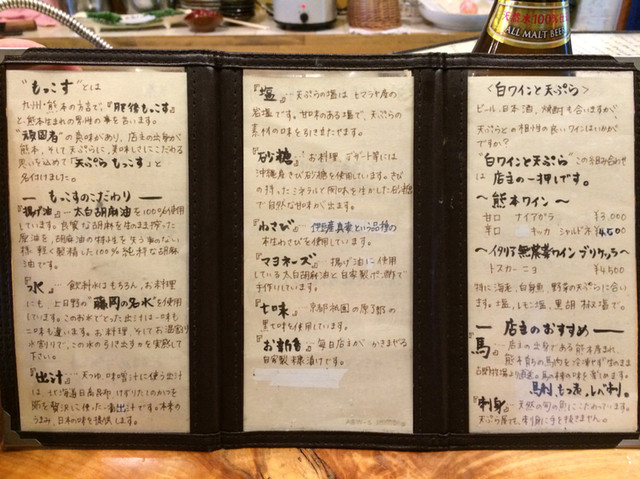 天然水100%
ALL MALT BEER
"もっこす"とは
九州・熊本の方言で、『肥後もっこす』
と、熊本生まれの男性の事を言います。
"頑固者"の意味があり、店主の出身が
熊本、そして天ぷらに、美味しさにこだわる
思いを込めて「天ぷら もっこす」と
名付けました。
もっこすのこだわり
『揚げ油』… 太白胡麻油を100%使用
しています。良質な胡麻を生のまま搾った
原油を、胡麻油の特性を失う事のない
様、軽く精製した100%純粋な胡麻
油です。
『水』… 飲料水はもちろん、お料理
にも、上日野の"藤岡の名水"を使用
しています。このお水でとった出汁は一味も
二味も違います。お料理、そしてお湯割り
水割りで、この水の引き出すのを実感して
下さい。
『出汁』… 天つゆ、味噌汁に使う出汁
は、北海道日高昆布、けずりたてのかつを
節を贅沢に使った一番出汁です。本来の
うまみ、日本の味を提供します。
『塩』… 天ぷらの塩は ヒマラヤ産の
岩塩です。甘味のある塩で、天ぷらの
素材の味を引きたたせます。
『砂糖』お料理、デザート等には
沖縄産きび砂糖を使用しています。きび
の持ったミネラルと風味を生かした砂糖
で自然な甘味が出ます。
『わさび』 伊豆産真妻という品種の
本生わさびを使用しています。
『マヨネーズ』 揚げ油に使用
している太白胡麻油と自家製ポン酢で
手作りしています。
『七味』… 京都祇園の原了郭の
黒七味を使用しています。
『お新香』… 毎日店主がかきまぜる
自家製糠漬けです。
〈白ワインと天ぷら〉
ビール、日本酒、焼酎も合いますが、
天ぷらとの相性の良いワインはいかが
ですか?
"白ワインと天ぷら"この組み合わせ
は 店主の一押しです。
～熊本ワイン～
甘口 ナイアガラ ¥3,000
辛口 キッカ シャルドネ ¥4,500
～イタリア 無農薬ワイン ブリケッラ～
トスカーニョ ¥4,500
特に海老、白身魚、野菜の天ぷらに合い
ます。塩、レモン塩、黒胡椒塩で。
店主のおすすめ
『馬』… 店主の出身である熊本産まれ、
熊本育ちの馬肉を冷凍せず生のまま
馬刺、もつ煮、レバ刺。
『刺身』… 天然の旬の魚にこだわっています。
天ぷら屋でも、刺身に手を抜きません。